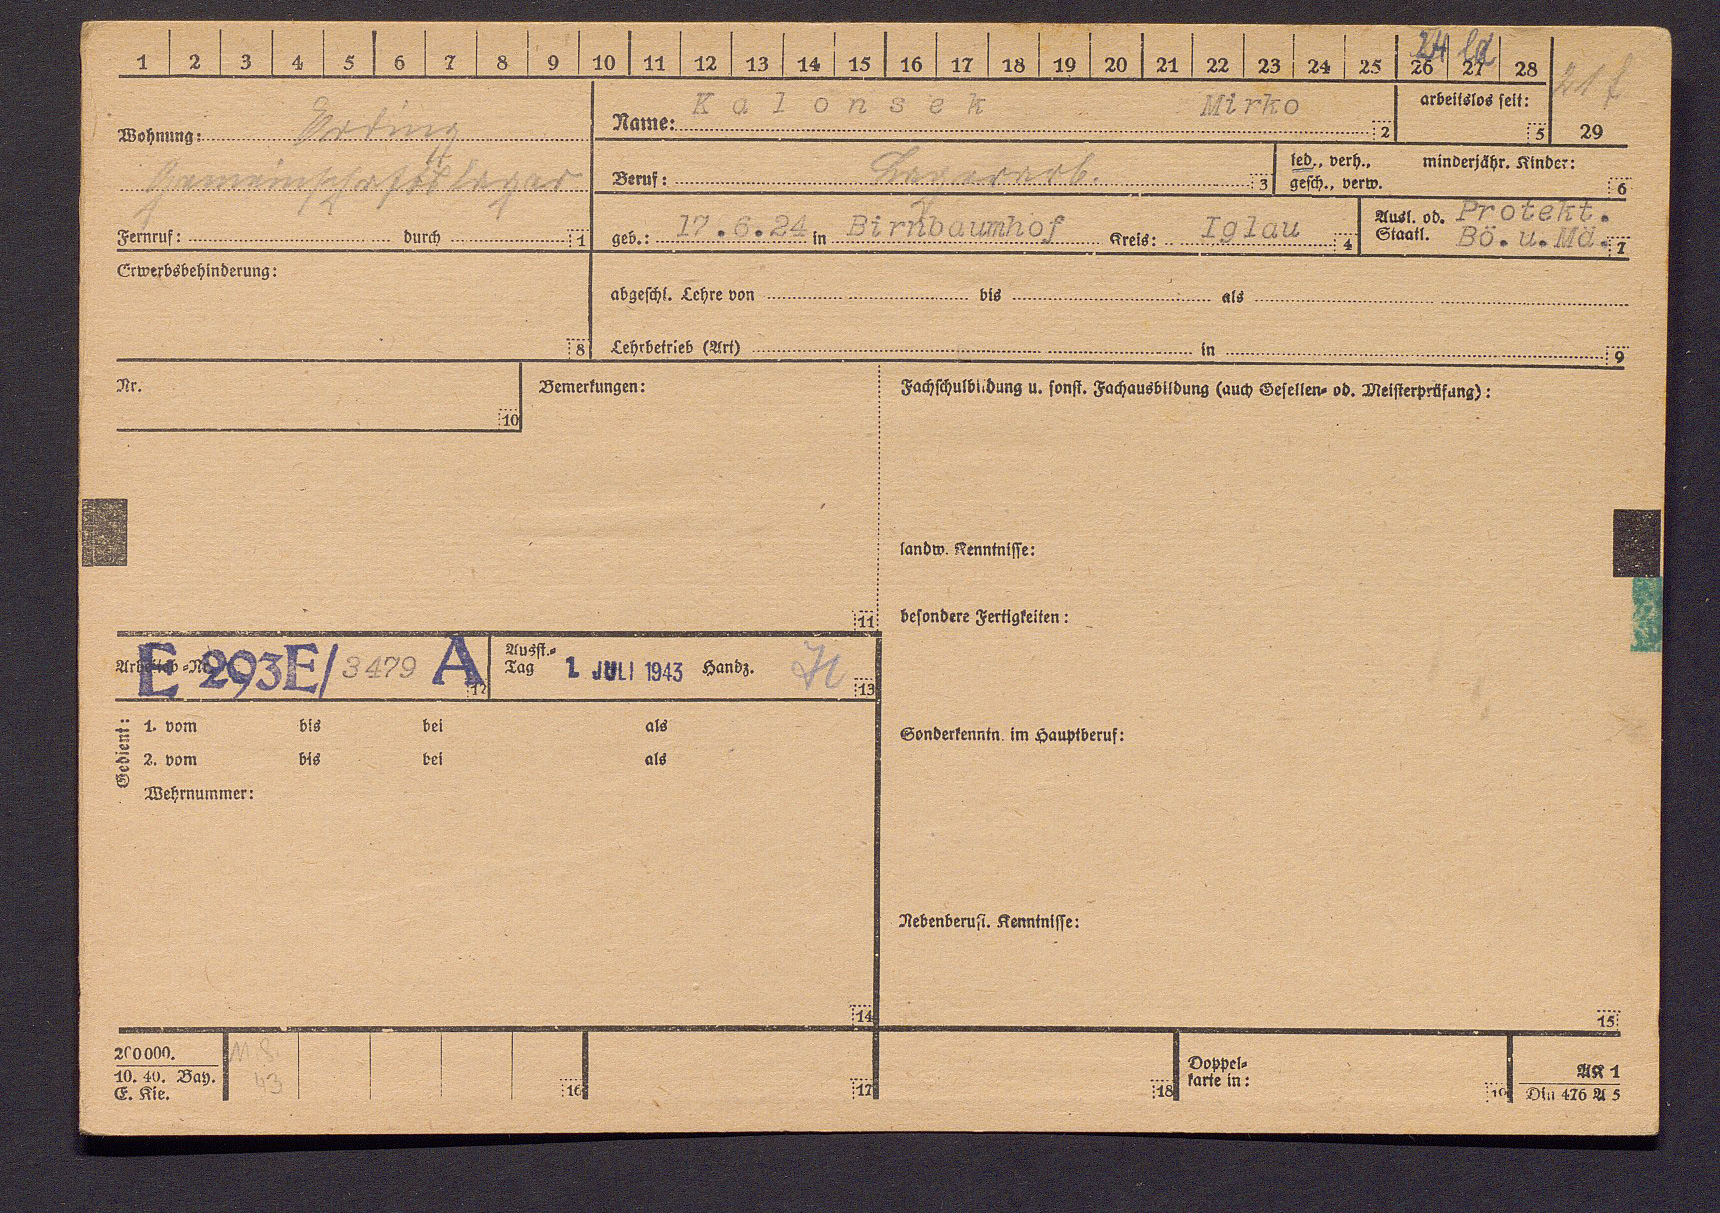 1 2 3 4 5 6 7 8 9 10 11 12 13 14 15 16 17 18 19 20 21 22 23 24 25 26 27 28
24 ld
21 f
Wohnung: Erding
Gemeinschaftslager
Fernruf: durch 1
Name: Kalonsek Mirko 2
arbeitslos seit: 5
29
Beruf: Lagerarb. 3
led., verh., gesch., verw.
minderjähr. Kinder: 6
geb.: 17.6.24 in Birnbaumhof Kreis: Iglau 4
Ausl. od. Staatl. Protekt. Bö.u.Mä. 7
Erwerbsbehinderung: 8
abgeschl. Lehre von bis als
Lehrbetrieb (Art) in 9
Nr. 10
Bemerkungen: 11
Fachschulbildung u. sonst. Fachausbildung (auch Gesellen- od. Meisterprüfung):
landw. Kenntnisse:
besondere Fertigkeiten:
E 293E/ 3479 A 12
Ausst.-Tag 1. JULI 1943 Handz. 13
Sonderkenntn. im Hauptberuf:
Gedient:
1. vom bis bei als
2. vom bis bei als
Wehrnummer:
Nebenberufl. Kenntnisse:
14
15
200000.
10. 40. Bay.
E. Kie.
43
16
17
18
Doppelkarte in: 19
AK 1
Din 476 A 5